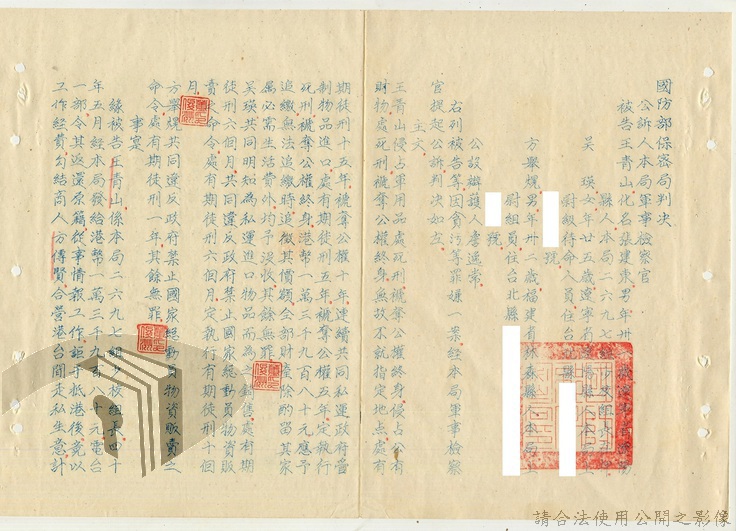 國防部保密局判決
公訴人本局軍事檢察官
被告王青山化名張建東男年卅
縣人本局二六九七組少校組長
吳瑛女年廿五歲遼寧省
尉級待命人員住台北縣
號
方舉焜男年卅二歲福建省林森縣人本局上
尉組員住台北縣
號
公設辯護人詹逸常
右列被告等因貪污等罪嫌一案經本局軍事檢察
官提起公訴判決如左
主文
王青山侵占軍用品處死刑褫奪公權終身侵占公有
財物處死刑褫奪公權終身無故不就指定地點處有
期徒刑十五年褫奪公權十年連續共同私運政府管
制物品進口處有期徒刑五年褫奪公權五年定執行
死刑褫奪公權終身港幣一萬三千九百八十元應予
追繳無法追繳時追徵其價額全部財產除酌留其家
屬必需生活費外均予沒收其餘無罪
吳瑛共同明知為私運進口物品而為之銷售處有期
徒刑六個月共同違反政府禁止國家總動員物資販
賣之命令處有期徒刑六個月定執行有期徒刑十個
月
方舉焜共同違反政府禁止國家總動員物資販賣之
命令處有期徒刑一年其餘無罪
事實
緣被告王青山係本局二六九七組少校組長四十
年五月經本局發給港幣一萬三千九百八十元電台
一部令其返還原籍從事情報工作詎于抵港後竟以
工作經費勾結商人方傳賢合營港台間走私生意計
請合法使用公開之影像